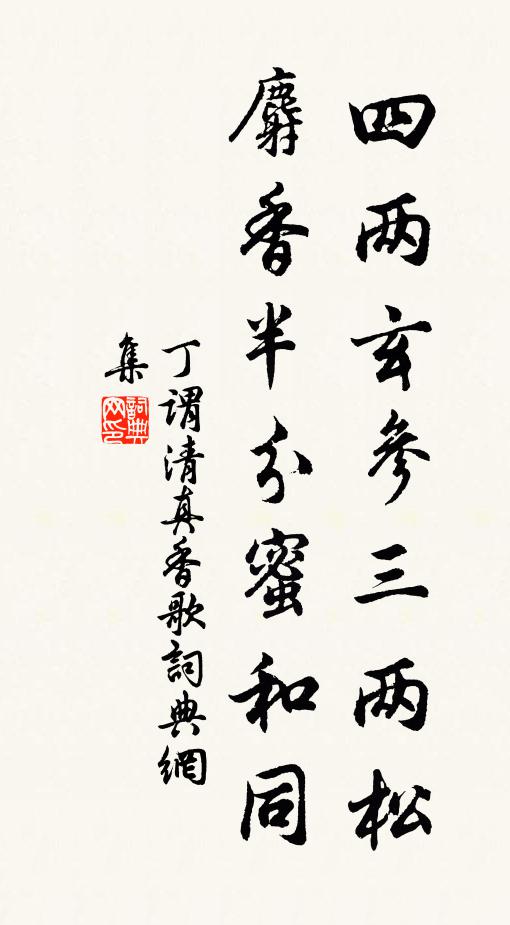 四两玄參三两松
麝香半分蜜和同
丁謂清真香歌詞典網
集
詞典
网印